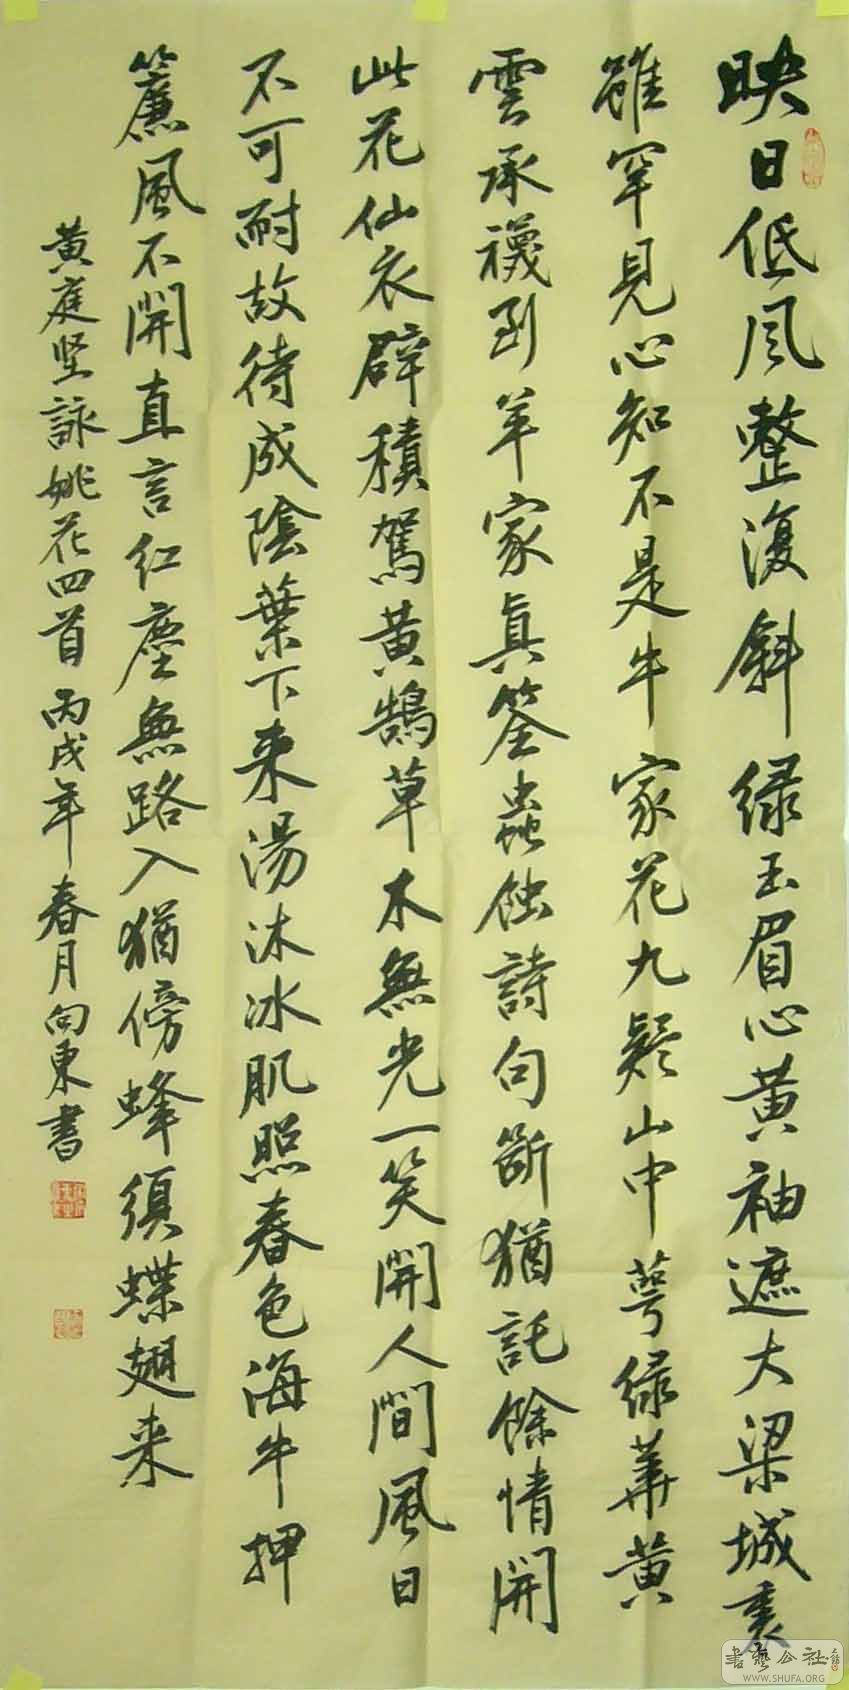 映日低风整復斜绿玉眉心黄袖遮大梁城裏
雖罕見心知不是牛家花九疑山中萼绿華黄
雲承襪到羊家真筌蟲蝕詩句断猶託餘情開
此花仙衣襞積駕黄鵠草木無光一笑開人間風日
不可耐故待成陰葉下来湯沐冰肌照春色海牛押
簾風不開直言红塵無路入猶傍蜂須蝶翅来
黄庭坚詠姚花四首丙戌年春月向東書
書藝公社
WWW.SHUFA.ORG